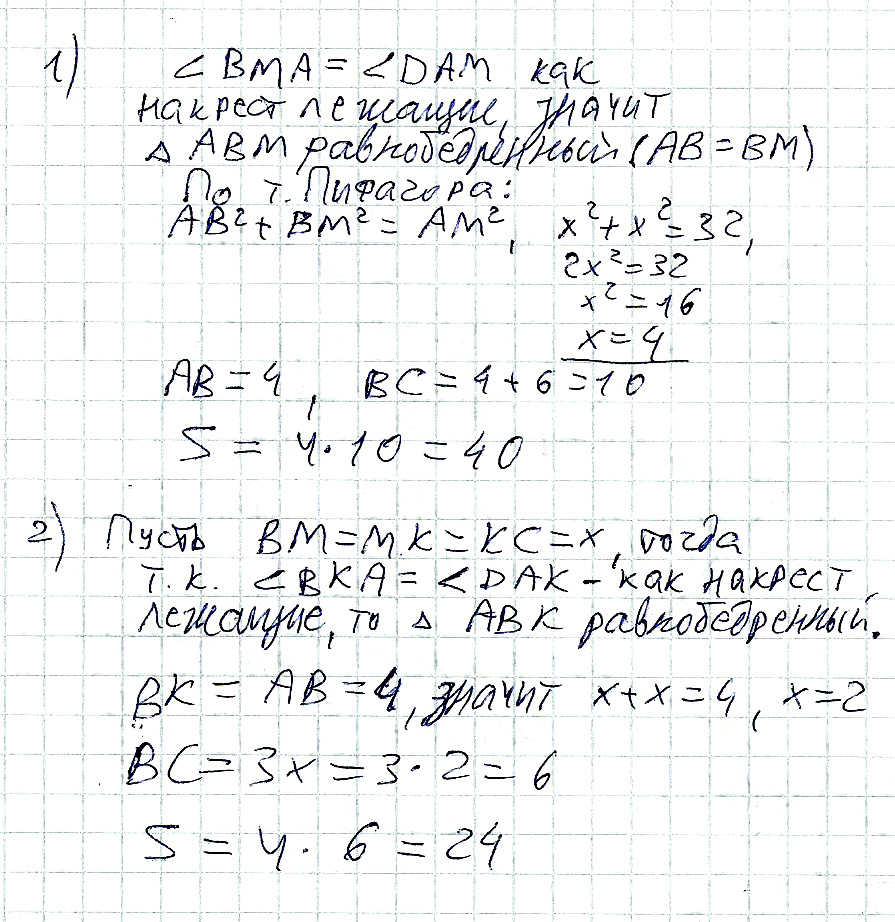 1) ∠BMA = ∠DAM как
накрест лежащие, значит
△ ABM равнобедренный (AB = BM)
По т. Пифагора:
AB² + BM² = AM², x² + x² = 32,
2x² = 32
x² = 16
x = 4
AB = 4, BC = 4 + 6 = 10
S = 4 · 10 = 40
2) Пусть BM = MK = KC = x, тогда
т.к. ∠BKA = ∠DAK - как накрест
лежащие, то △ ABK равнобедренный.
BK = AB = 4, значит x + x = 4, x = 2
BC = 3x = 3 · 2 = 6
S = 4 · 6 = 24